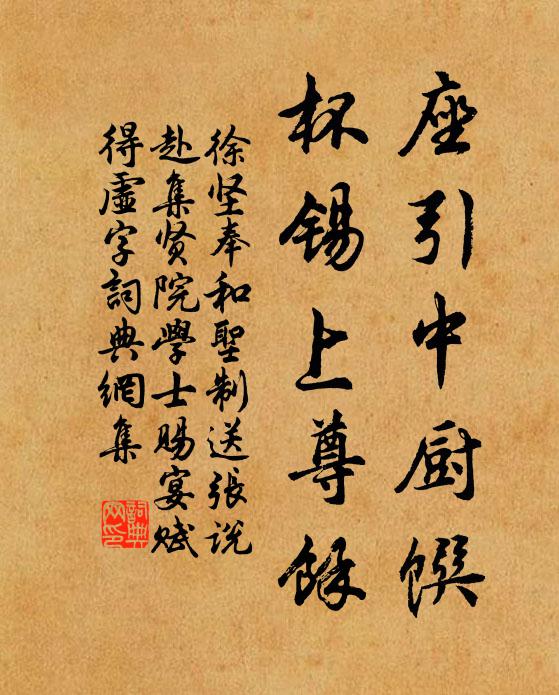 座引中厨馔
杯锡上尊馀
徐坚奉和聖制送張说
赴集贤院學士赐宴赋
得虚字詞典網集
詞典网印